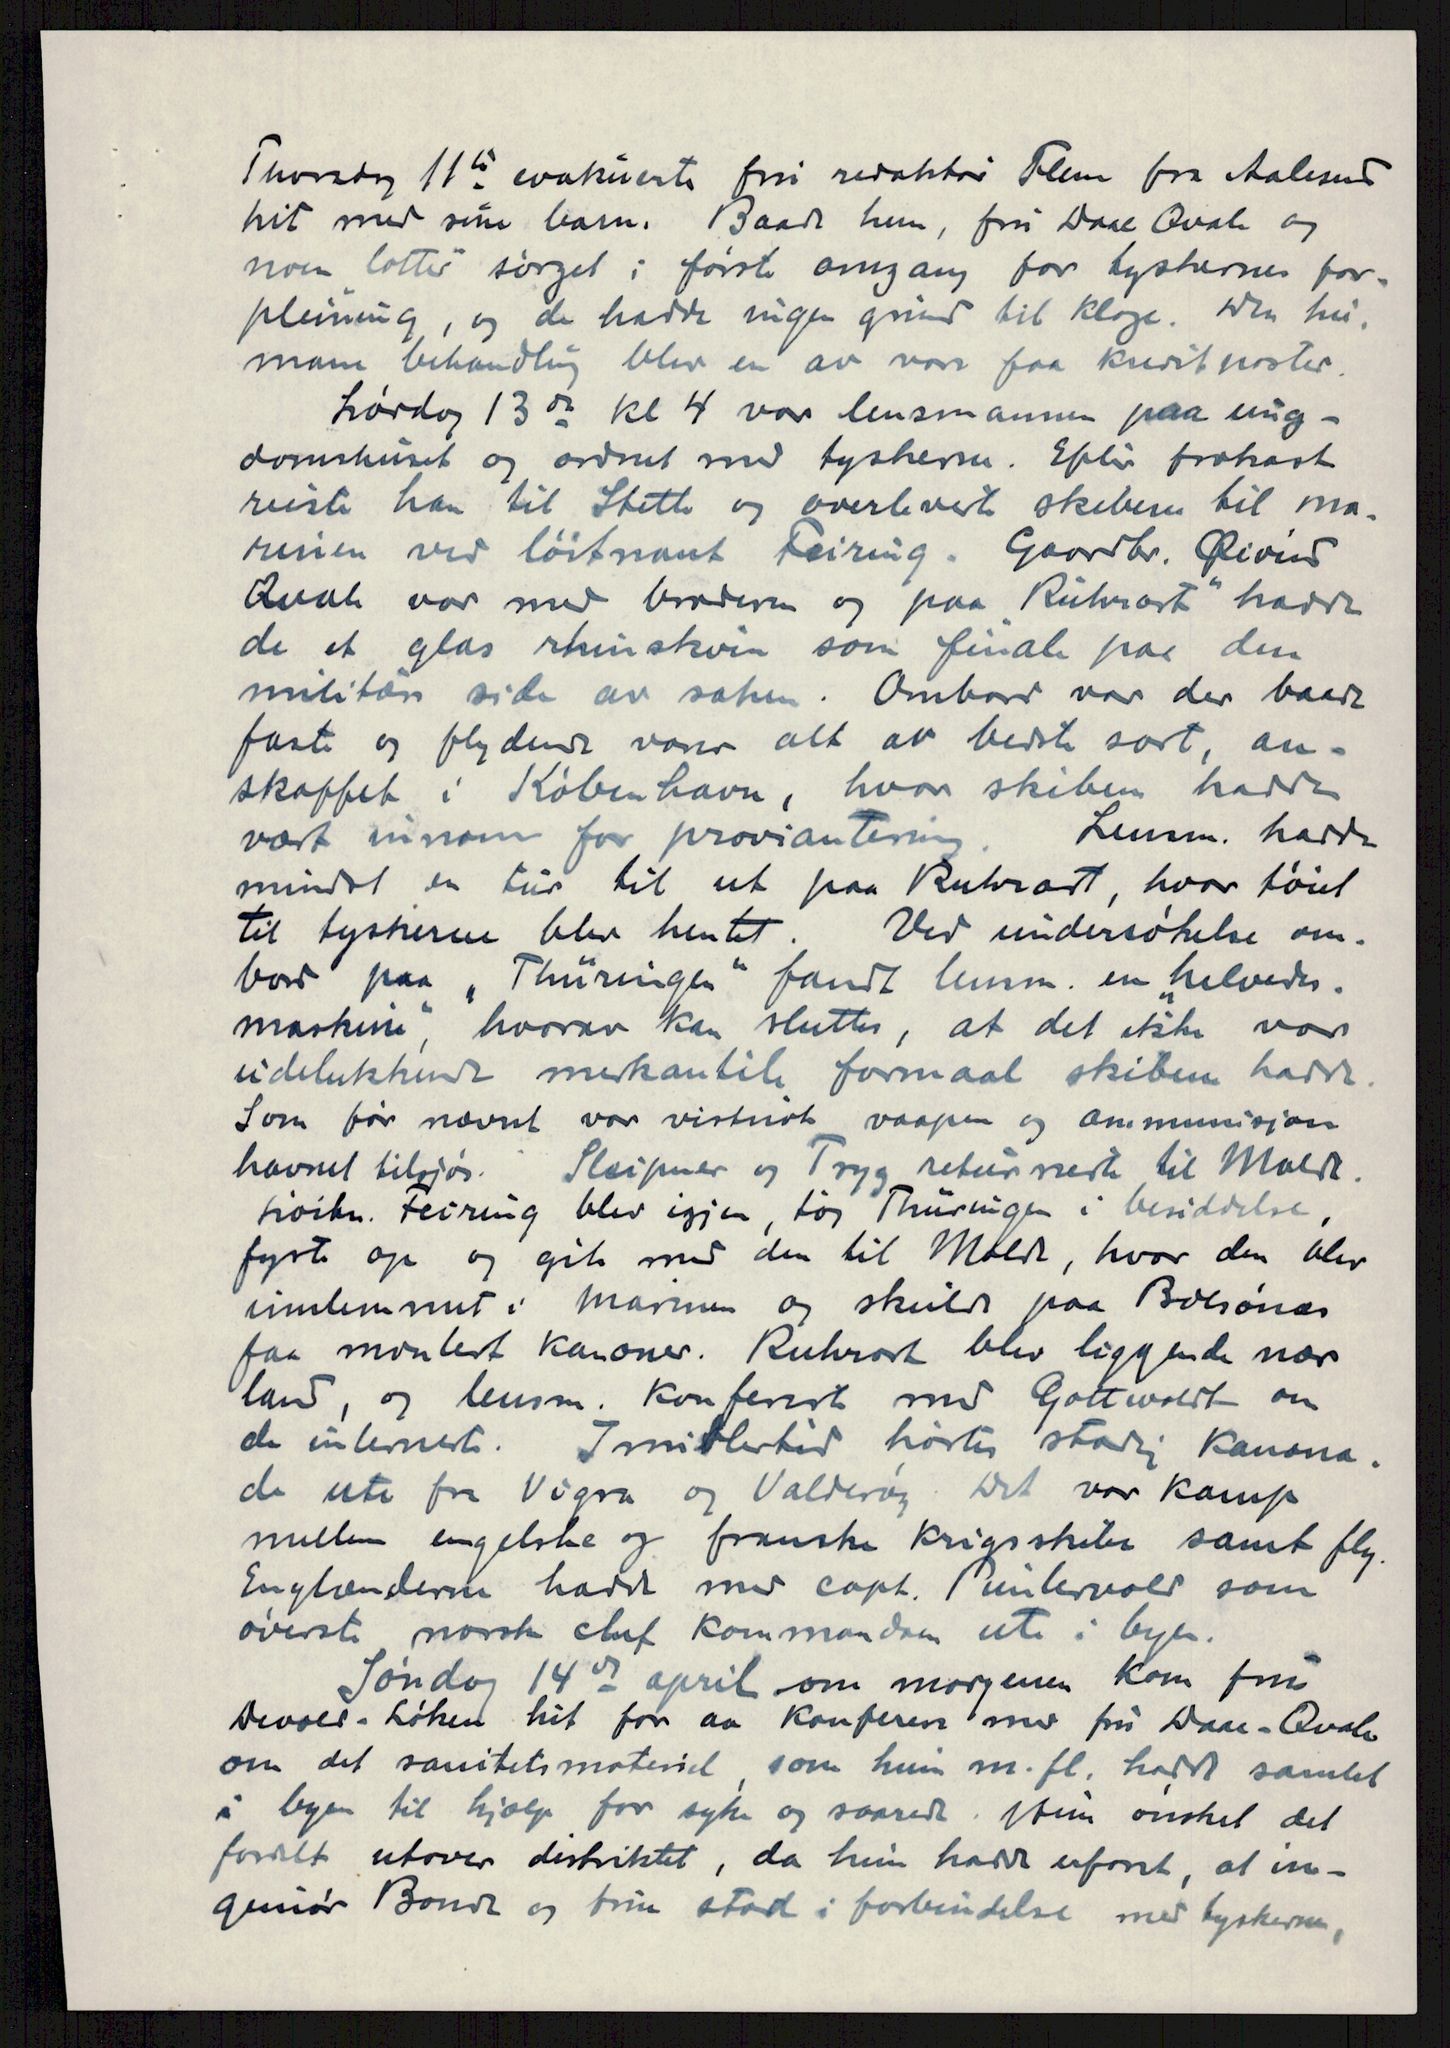 Thorsdag 11te evakuerte fru redaktør Flem fra Aalesund
hit med sine barn. Baade hun, fru Daae Qvale og
noen lotter sørget i første omgang for tyskernes for-
pleining, og de hadde ingen grund til klage. Den hu-
mane behandling blev en av vore faa kreditposter.
Lørdag 13de kl 4 var lensmannen paa ung-
domshuset og ordnet med tyskerne. Efter frokost
reiste han til Stette og overleverte skibene til ma-
rinen ved löitnant Feiring. Gaardbr. Øivind
Qvale var med broderen og paa "Ruhrort" hadde
de et glas rhinskvin som finale paa den
militære side av saken. Ombord var der baade
faste og flydende varer alt av bedste sort, an-
skaffet i København, hvor skibene hadde
vært innom for proviantering. Lensm. hadde
mindst en tur til ut paa Ruhrort, hvor tøiet
til tyskerne blev hentet. Ved undersøkelse om-
bord paa „Thüringen" fandt lensm. en „helvedes-
maskine", hvorav kan sluttes, at det ikke var
udelukkende merkantile formaal skibene hadde.
Som før nævnt var vistnok vaapen og ammunisjon
havnet tilsjøs. Sleipner og Tryg returnerte til Molde.
Løitn. Feiring blev igjen, tog Thüringen i besiddelse,
fyrte op og gik med den til Molde, hvor den blev
innlemmet i marinen og skulde paa Bolsønes
faa montert kanoner. Ruhrort blev liggende nær
land, og lensm. konfererte med Gottwaldt om
de internerte. Imidlertid hørtes stadig kanona-
de ute fra Vigra og Valderøy. Det var kamp
mellem engelske og franske krigsskibe samt fly.
Englænderne hadde med capt. Puntervold som
øverste norske chef kommandoen ute i byen.
Søndag 14de april om morgenen kom fru
Devold-Løken hit for aa konferere med fru Daae-Qvale
om det sanitetsmateriel, som hun m.fl. hadde samlet
i byen til hjælp for syke og saarede. Hun ønsket det
fordelt utover distriktet, da hun hadde erfaret, at in-
geniør Bonde og frue stod i forbindelse med tyskerne,